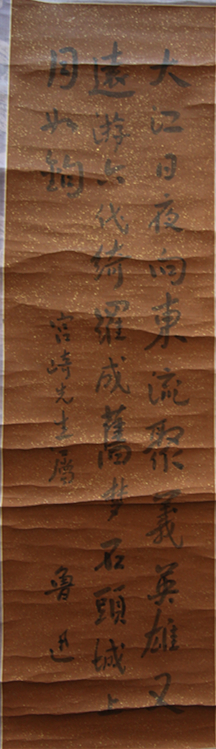 大江日夜向東流聚義英雄又
遠游六代綺羅成舊梦石頭城上
月如鉤
宮崎先生屬
魯迅